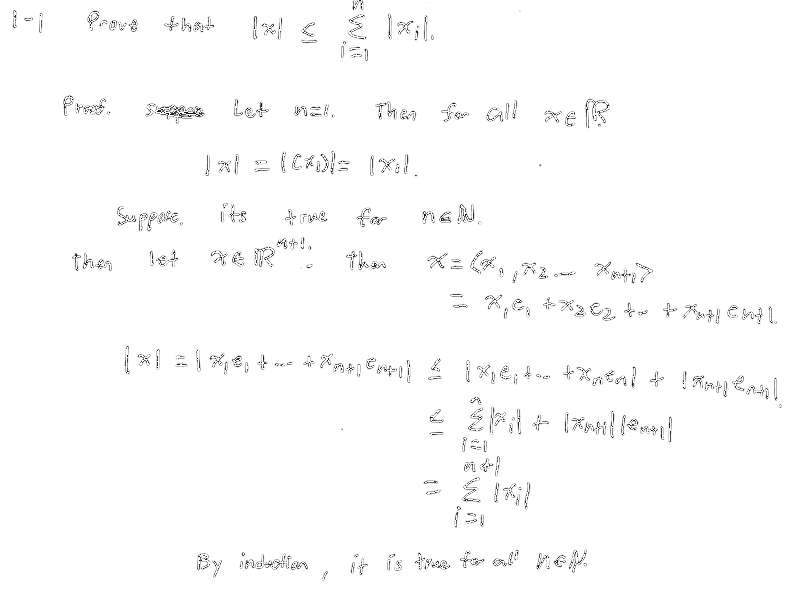 1-1 Prove that |x| ≤ Σ_{i=1}^{n} |x_i|.
Proof. Let n=1. Then for all x∈ℝ
|x| = |(x_1)| = |x_1|.
Suppose its true for n∈ℕ.
then let x∈ℝ^{n+1}. then x=<x_1, x_2 ... x_{n+1}>
= x_1e_1 + x_2e_2 + .. + x_{n+1}e_{n+1}.
|x| = |x_1e_1 + ... + x_{n+1}e_{n+1}| ≤ |x_1e_1 + ... + x_ne_n| + |x_{n+1}e_{n+1}|.
≤ Σ_{i=1}^{n} |x_i| + |x_{n+1}||e_{n+1}|
= Σ_{i=1}^{n+1} |x_i|
By induction, it is true for all n∈ℕ.